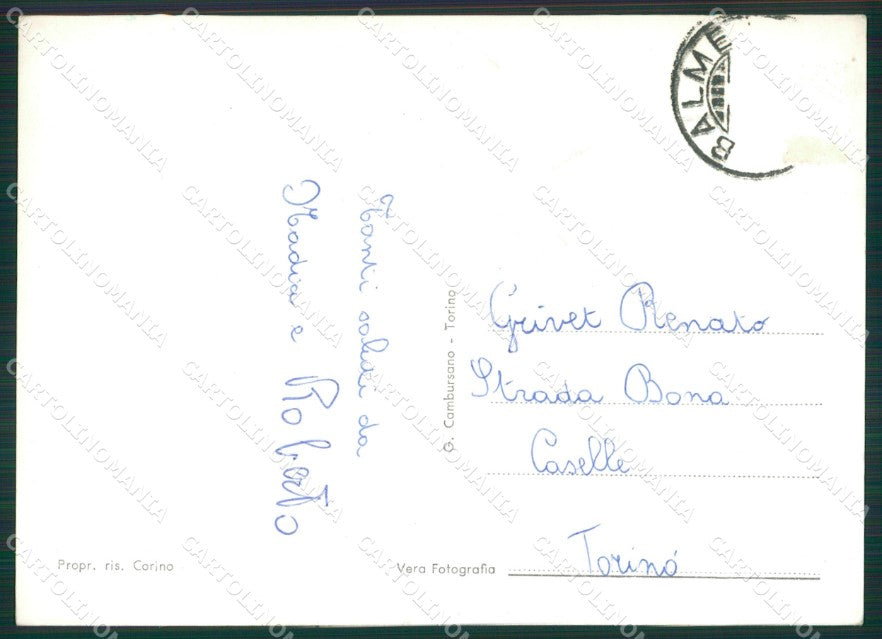 BALME
Tanti saluti da
Nadia e Roberto
G. Cambursano - Torino
Grivet Renato
Strada Bona
Caselle
Torino
Propr. ris. Corino
Vera Fotografia
CARTOLINOMANIA